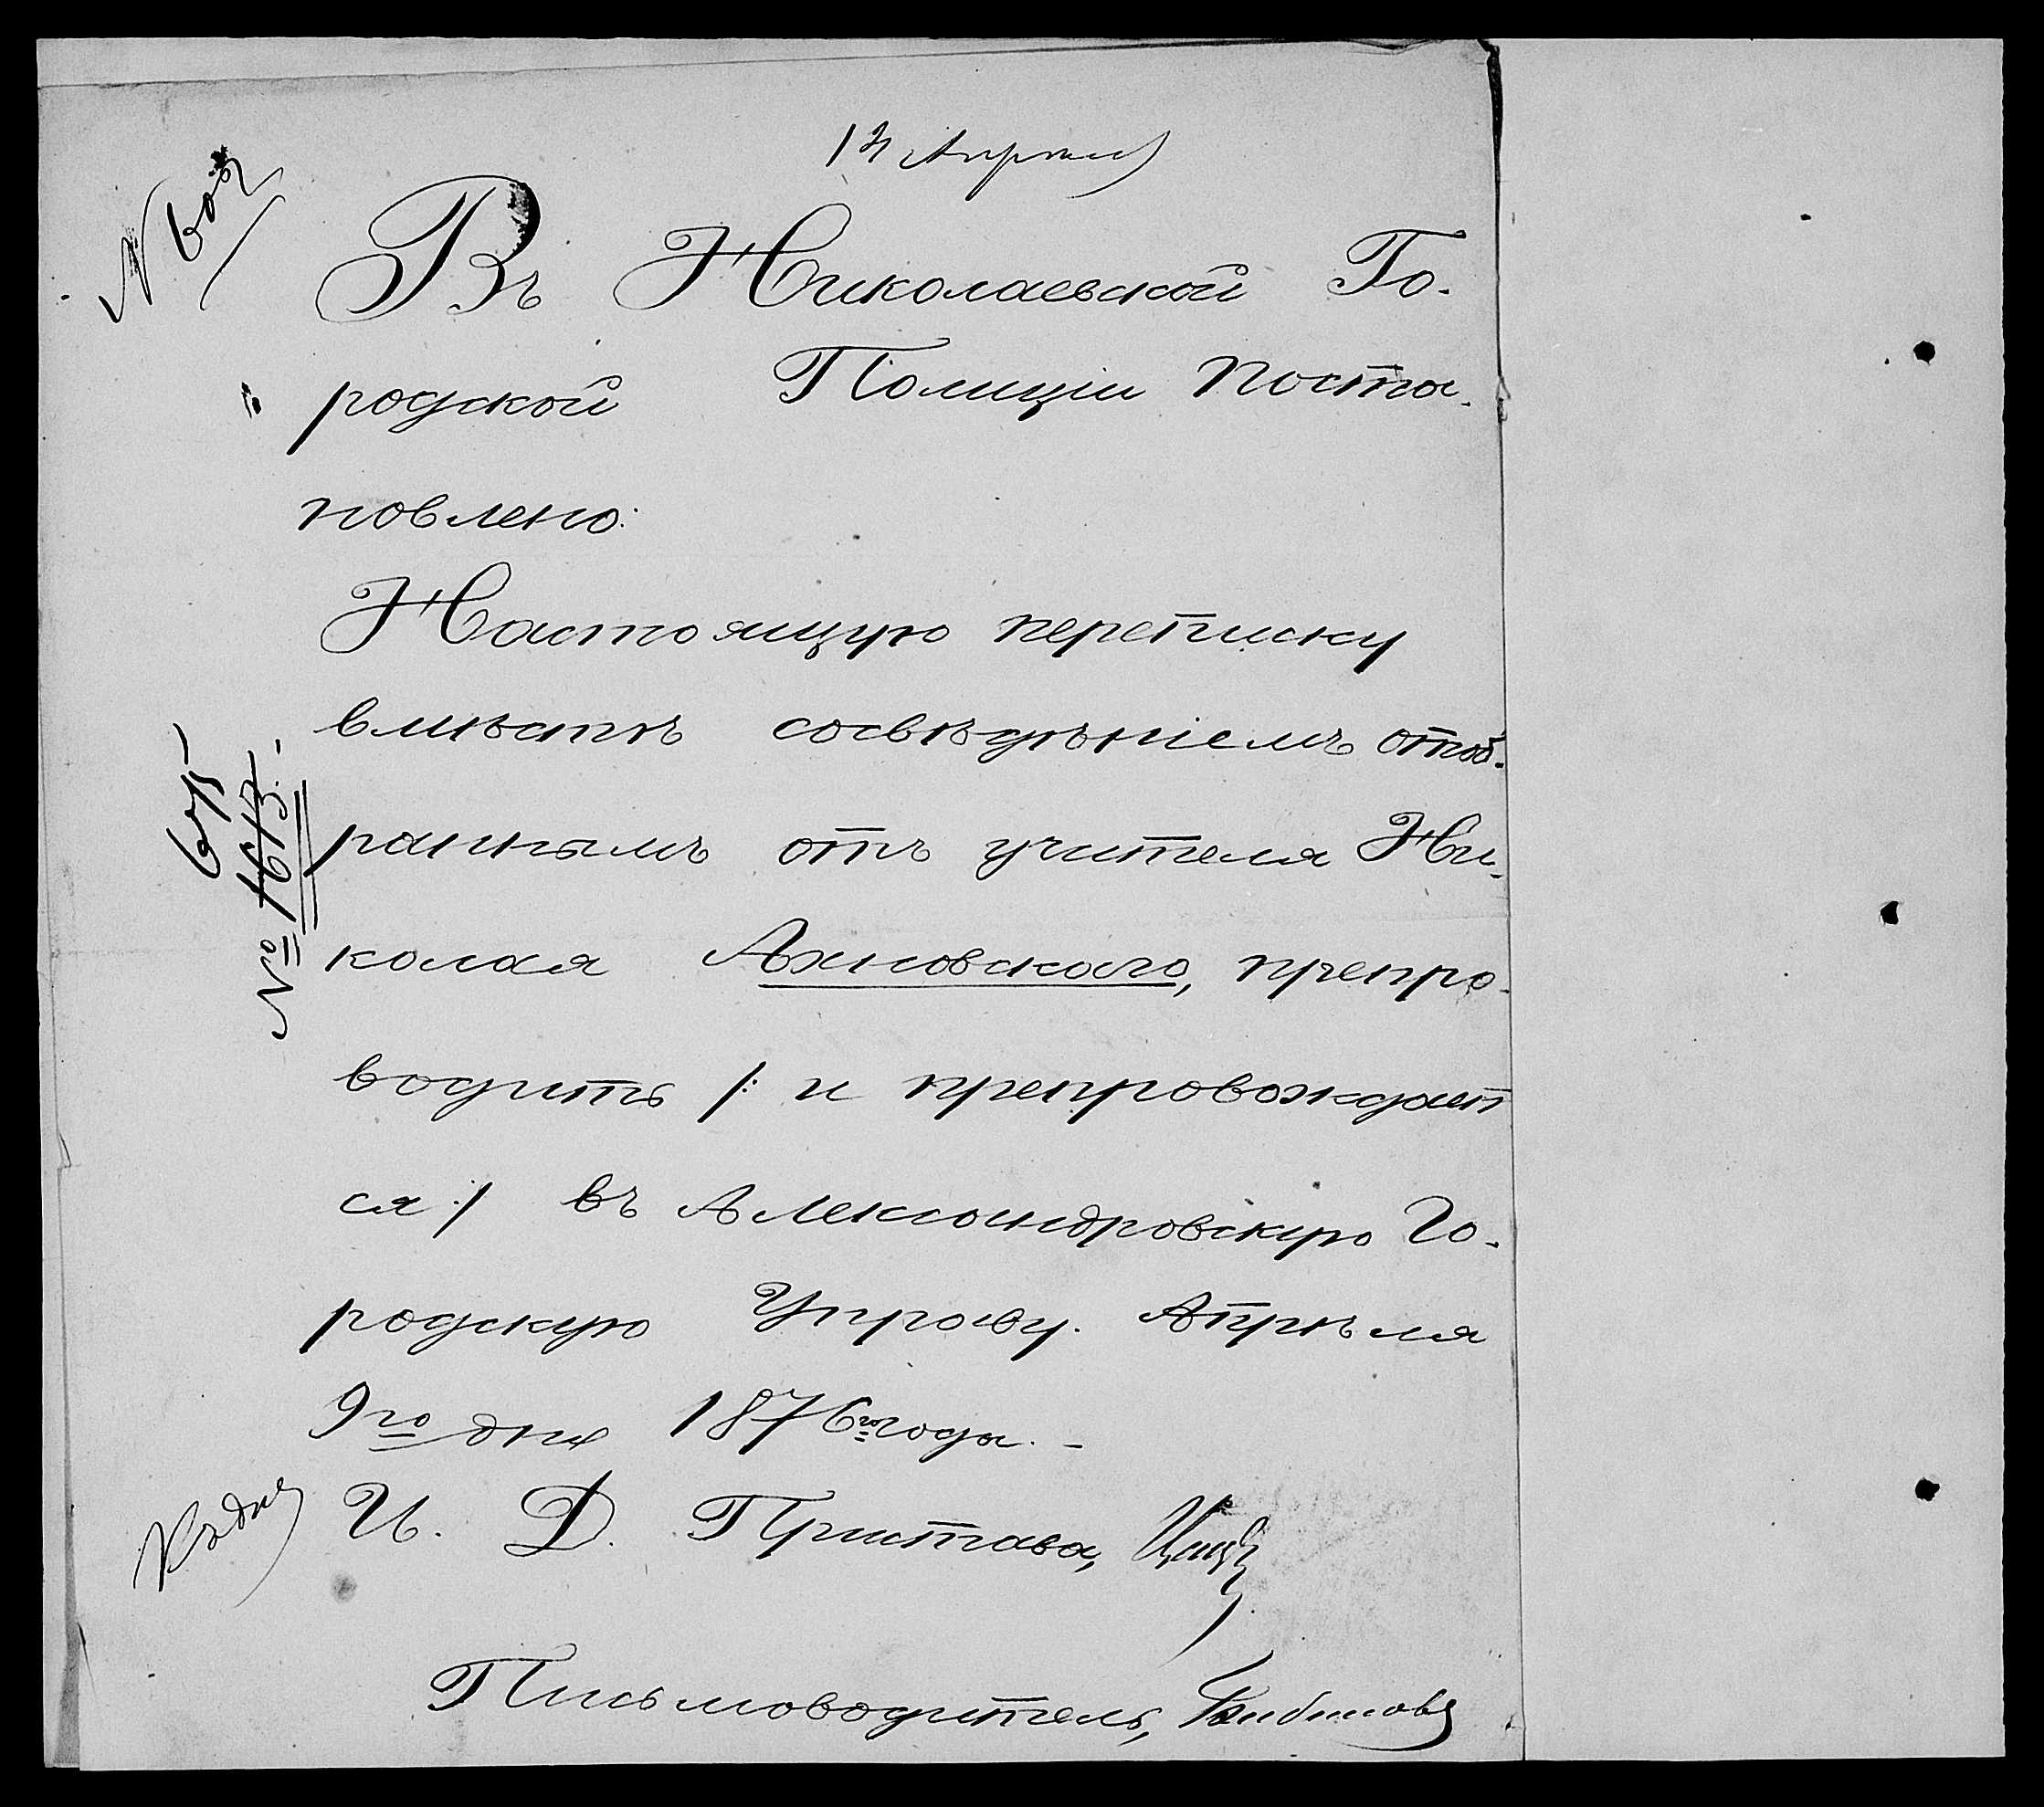 Апрѣля
Въ Николаевской Го-
родской Полиціи Поста-
новлено:
Настоящую переписку
вмѣстѣ сосвѣдѣніемъ отоб-
раннымъ отъ учителя Ни-
колая Ахновскаго, препро-
водить /: и препровождает
ся :/ въ Александровскую Го-
родскую Управу. Апрѣля
9го дня 1876го года. -
И. Д. Пристава,
Письмоводитель,
№ 1613.
Къ дѣлу